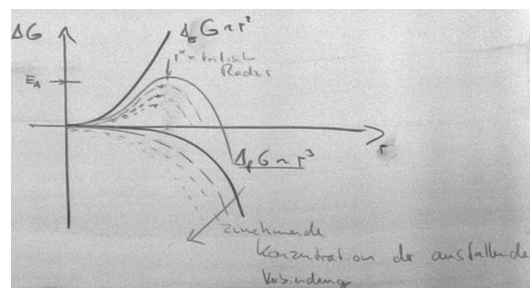 ΔG
Δσ G ~ r²
r* = kritische
Radius
E_A
r
Δf G ~ r³
zunehmende
Konzentration der ausfallende
Verbindung